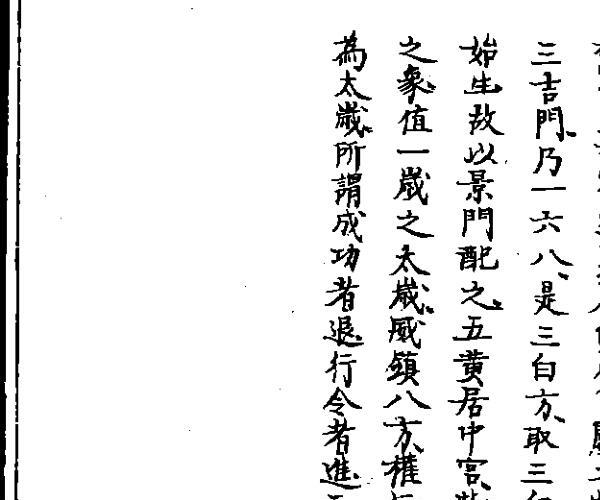 三吉門、乃一六八、是三白方、取三白
始生故以景門配之、五黄居中宮、
之象、值一歲之太歲、威鎮八方、權
為太歲、所謂成功者退、行令者進、